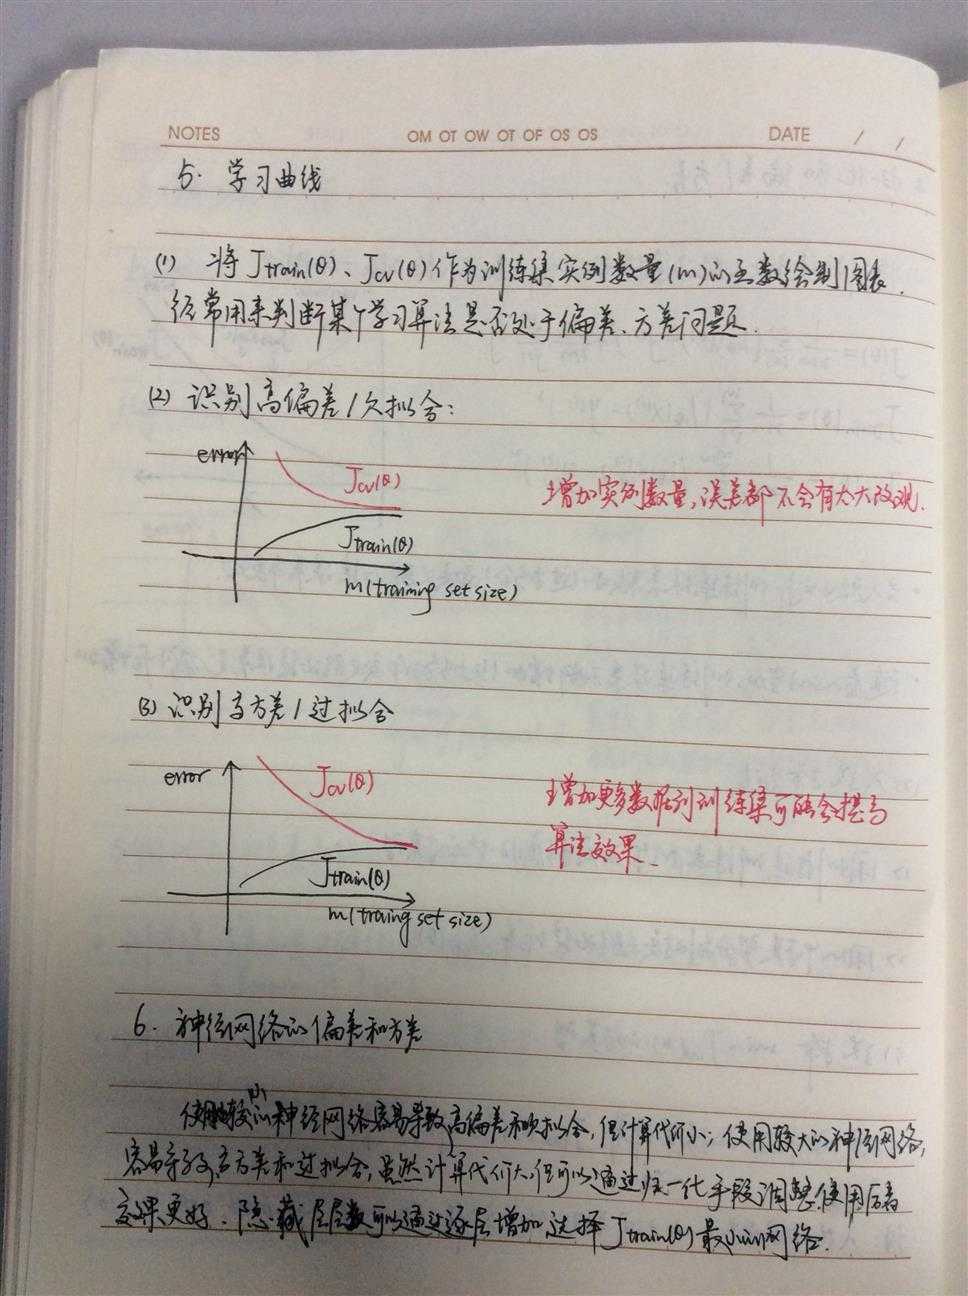 NOTES OM OT OW OT OF OS OS DATE / /
5. 学习曲线
(1) 将 Jtrain(θ)、Jcv(θ) 作为训练集实例数量(m)的函数绘制图表.
经常用来判断某个学习算法是否处于偏差、方差问题.
(2) 识别高偏差/欠拟合:
error
Jcv(θ)
增加实例数量,误差都不会有太大改观.
Jtrain(θ)
m(training set size)
(3) 识别高方差/过拟合
error
Jcv(θ)
增加更多数据到训练集可能会提高
算法效果.
Jtrain(θ)
m(traing set size)
6. 神经网络的偏差和方差
使用较小的神经网络容易导致高偏差和欠拟合,但计算代价小;使用较大的神经网络,
容易导致高方差和过拟合,虽然计算代价大,但可以通过归一化手段调整.使用后者
效果更好.隐藏层层数可以通过逐层增加,选择 Jtrain(θ) 最小的网络.